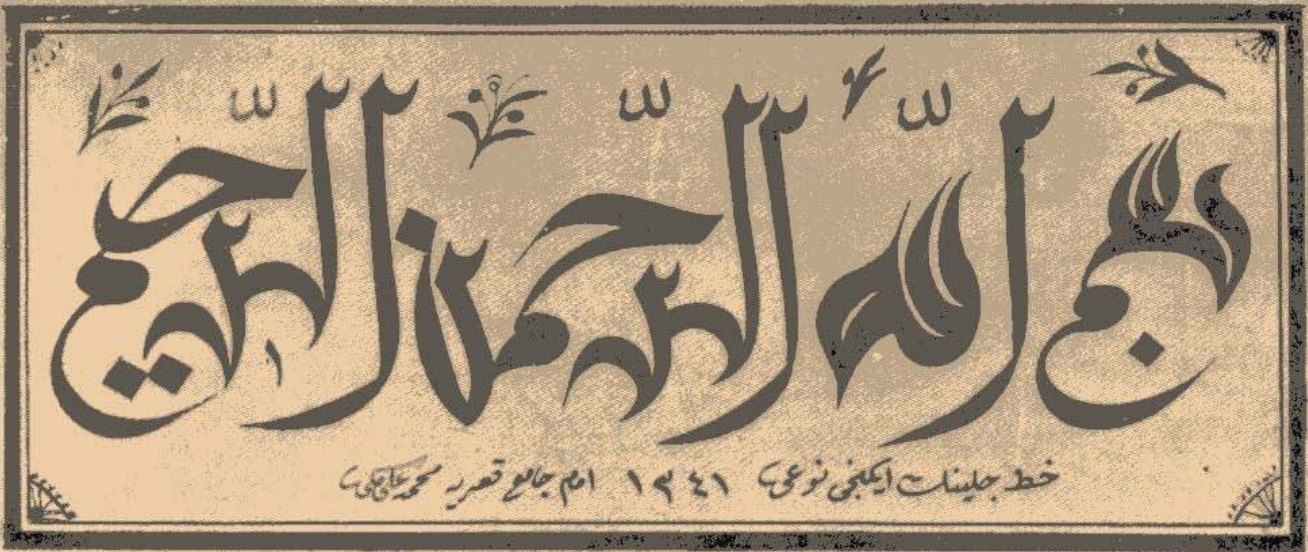 بسم الله الرحمن الرحيم
خط جلينات ايكنجى نوعى ١٣٤١ امام جامع محمد على